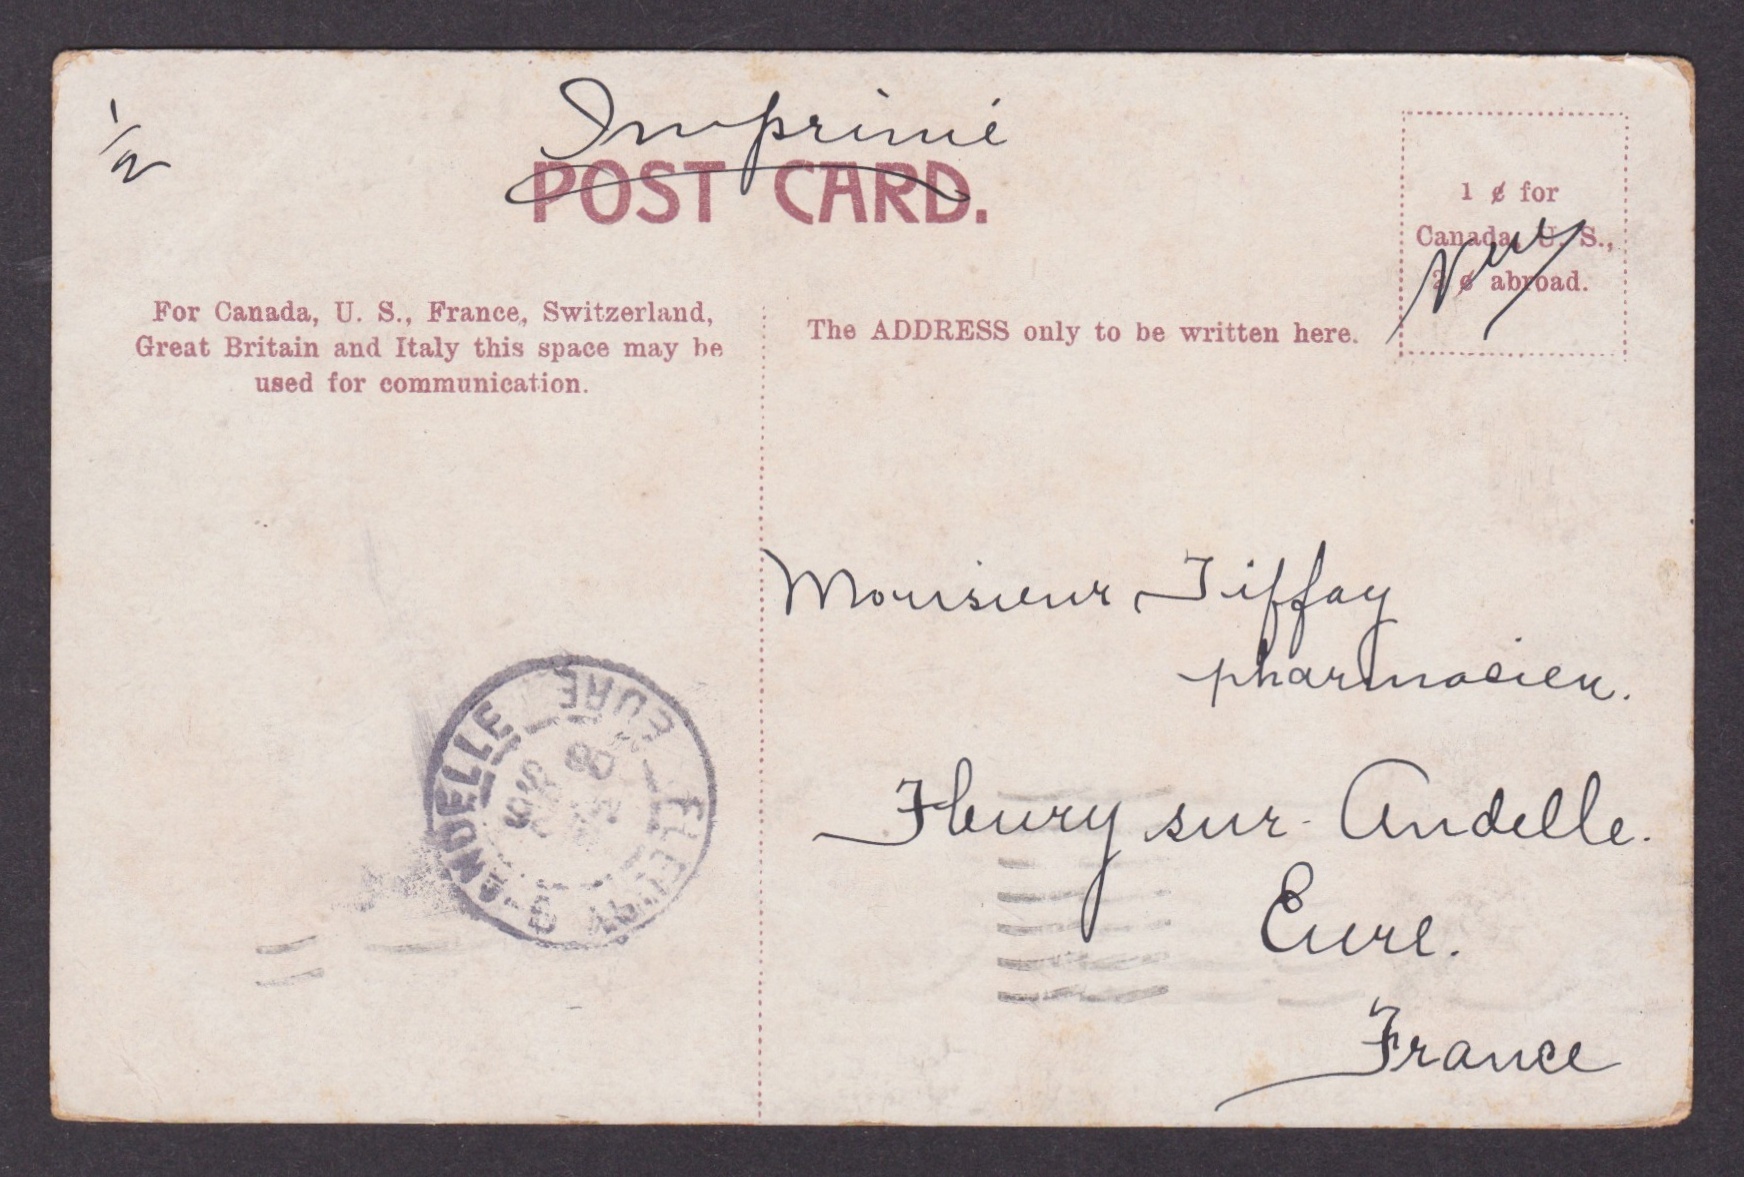 1/2
Imprimé
POST CARD.
1 ¢ for
Canada, U. S.,
2 ¢ abroad.
For Canada, U. S., France, Switzerland,
Great Britain and Italy this space may be
used for communication.
The ADDRESS only to be written here.
Monsieur Tiffay
pharmacien.
Fleury sur Andelle.
Eure.
France
FLEURY-S-ANDELLE EURE
08